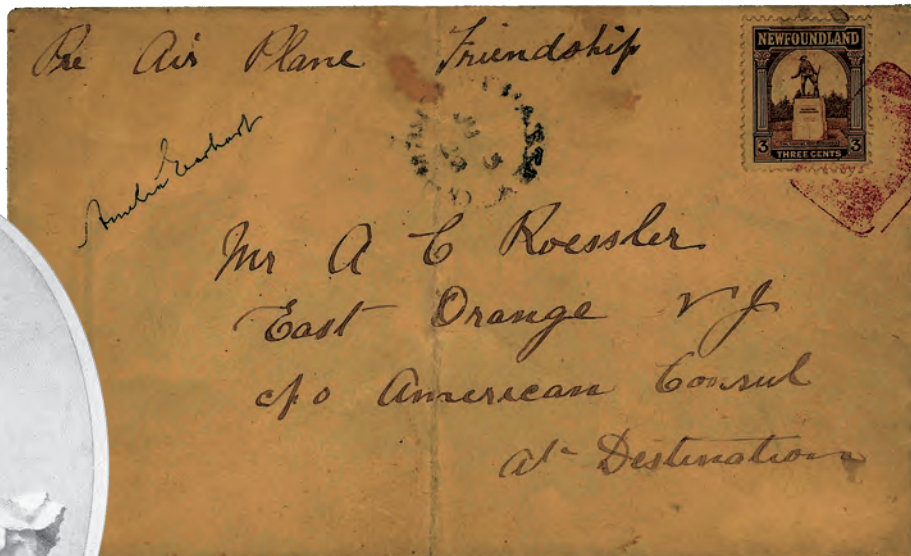 Per Air Plane Friendship
NEWFOUNDLAND
3 3
THREE CENTS
Amelia Earhart
Mr A C Roessler
East Orange N J
c/o American Consul
at Destination